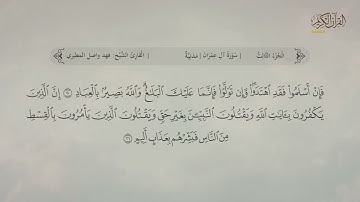 القرآن الكريم
الجزء الثالث | سورة آل عمران | مدنية | القارئ الشيخ: فهد واصل المطيري
فَإِنْ أَسْلَمُوا۟ فَقَدِ ٱهْتَدَوا۟ ۖ وَّإِن تَوَلَّوْا۟ فَإِنَّمَا عَلَيْكَ ٱلْبَلَـٰغُ ۗ وَٱللَّهُ بَصِيرٌۢ بِٱلْعِبَادِ ٢٠ إِنَّ ٱلَّذِينَ
يَكْفُرُونَ بِـَٔايَـٰتِ ٱللَّهِ وَيَقْتُلُونَ ٱلنَّبِيِّـۧنَ بِغَيْرِ حَقٍّ وَيَقْتُلُونَ ٱلَّذِينَ يَأْمُرُونَ بِٱلْقِسْطِ
مِنَ ٱلنَّاسِ فَبَشِّرْهُم بِعَذَابٍ أَلِيمٍ ٢١